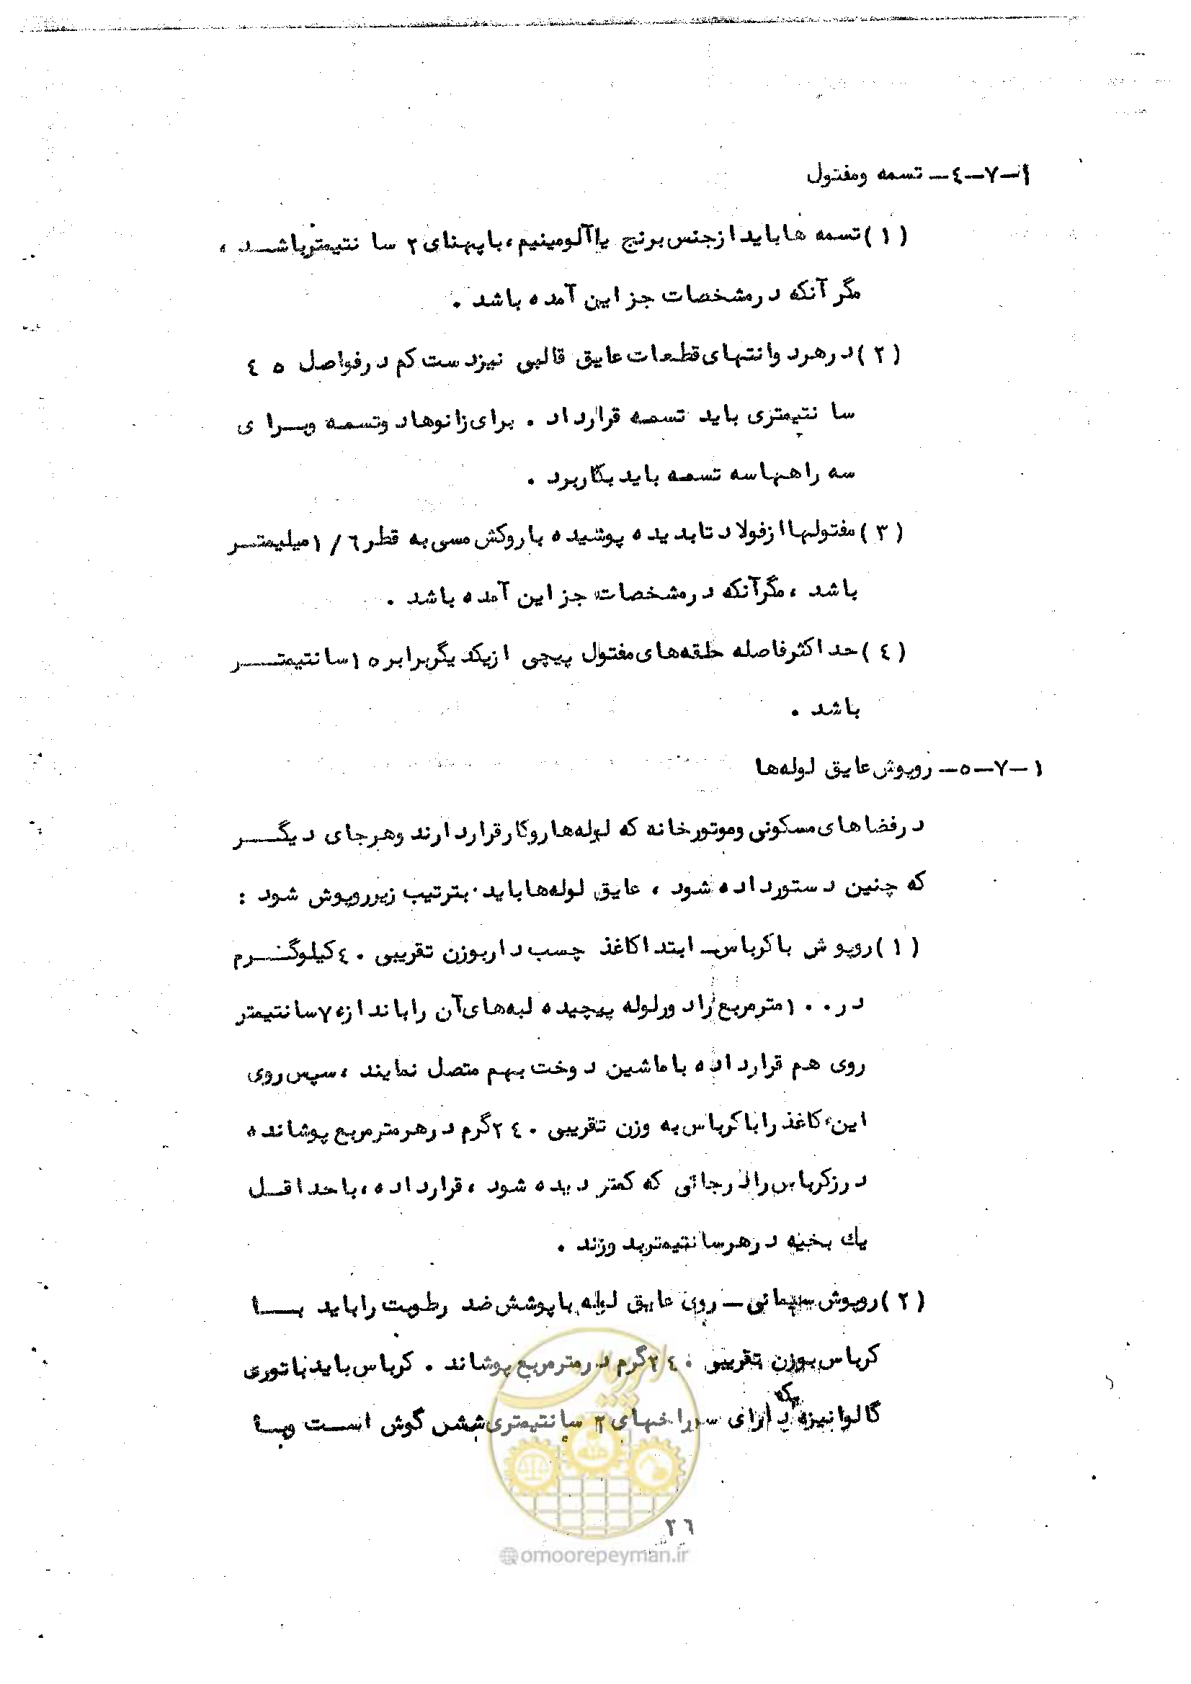 ۱-۷-٤- تسمه ومفتول
(۱) تسمه ها باید از جنس برنج یا آلومینیم، با پهنای ۲ سانتیمتر باشد،
مگر آنکه در مشخصات جز این آمده باشد.
(۲) در هر دو انتهای قطعات عایق قالبی نیز دست کم در فواصل ٤٥
سانتیمتری باید تسمه قرار داد. برای زانوها دو تسمه و برای
سه راهها سه تسمه باید بکار برد.
(۳) مفتولها از فولاد تابدیده پوشیده با روکش مسی به قطر ۱/٦ میلیمتر
باشد، مگر آنکه در مشخصات جز این آمده باشد.
(٤) حداکثر فاصله حلقه‌های مفتول پیچی از یکدیگر برابر ۱۵ سانتیمتر
باشد.
۱-۷-۵- روپوش عایق لوله‌ها
در فضاهای مسکونی وموتورخانه که لوله‌ها روکار قرار دارند وهرجای دیگر
که چنین دستور داده شود، عایق لوله‌ها باید بترتیب زیر روپوش شود:
(۱) روپوش با کرباس- ابتدا کاغذ چسب دار بوزن تقریبی ٤۰ کیلوگرم
در ۱۰۰ مترمربع را دور لوله پیچیده لبه‌های آن را باندازه ۷ سانتیمتر
روی هم قرار داده با ماشین دوخت بهم متصل نمایند، سپس روی
این کاغذ را با کرباس به وزن تقریبی ۲٤۰ گرم در هر مترمربع پوشانده
درز کرباس را در جائی که کمتر دیده شود، قرار داده، با حداقل
یك بخیه در هر سانتیمتر بدوزند.
(۲) روپوش سیمانی- روی عایق لوله با پوشش ضد رطوبت را باید با
کرباس بوزن تقریبی ۲٤۰ گرم در مترمربع پوشاند. کرباس باید با توری
گالوانیزه که دارای سوراخهای ۲ سانتیمتری شش گوش است وبا
۲٦
@omoorepeyman.ir